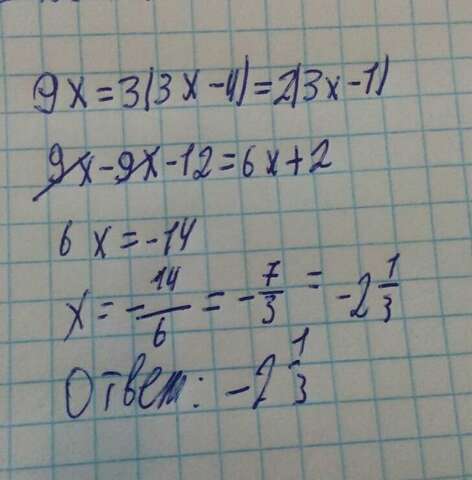 9x=3(3x-4)=2(3x-1)
9x-9x-12=6x+2
6x=-14
x=-14/6=-7/3=-2 1/3
Ответ: -2 1/3